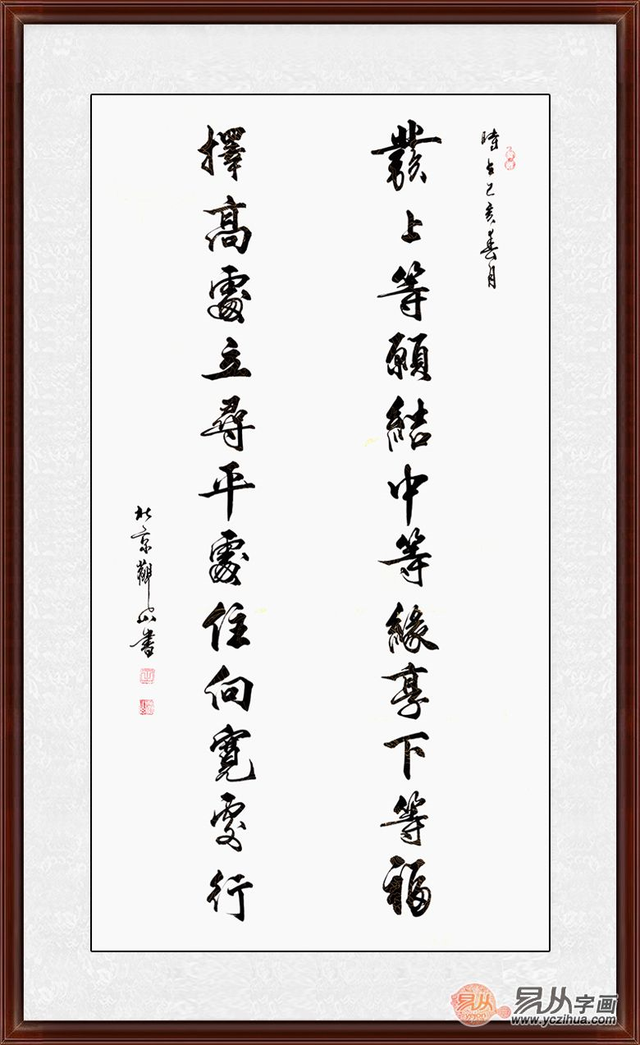 時在己亥春月
發上等願結中等緣享下等福
擇高處立尋平處住向寬處行
北京觀山書
易从
易从字画
www.yczihua.com